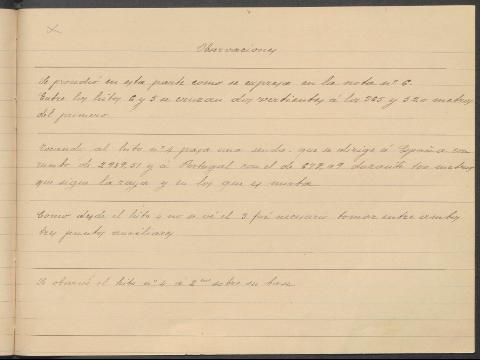 Observaciones
Se procedió en esta parte como se expresa en la nota nº 6.
Entre los hitos 6 y 5 se cruzan dos vertientes á los 265 y 320 metros
del primero.
Tocando al hito nº 4 pasa una senda que se dirige á España con
rumbo de 2989,51 y á Portugal con el de 678,49 durante 100 metros
que sigue la raya y en los que es mixta
Como desde el hito 4 no se vé el 3 fué necesario tomar entre ambos
tres puntos auxiliares
Se observó el hito nº 4 á 2 sobre su base